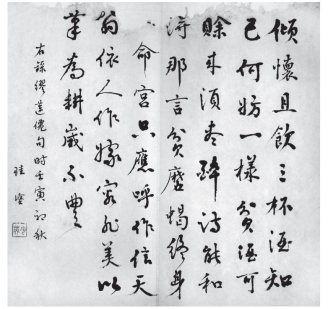 倾懷且飲三杯酒知
己何妨一樣貧酒可
賒來須盡醉詩能和
得那言貧磨蝎終身
命宮只應呼作信天
翁依人作嫁寒非美以
筆為耕歲不豐
右錄繆蓮僊句时壬寅初秋